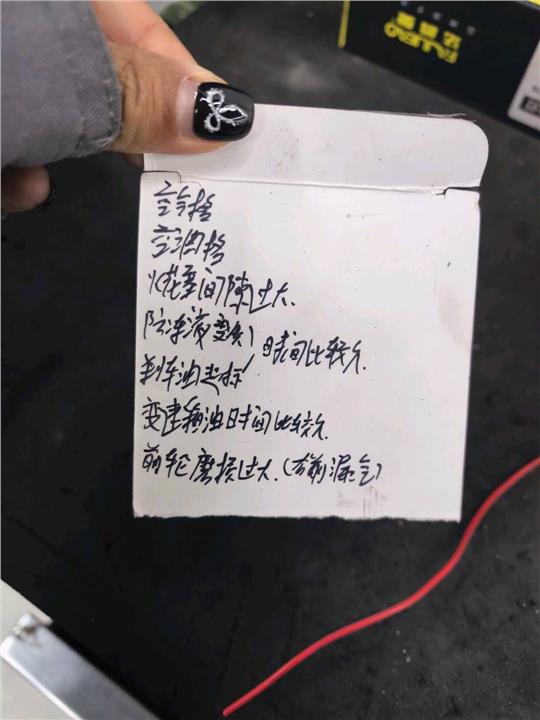 空气格
空调格
火花塞间隙过大.
防冻液变质 时间比较久.
刹车油超标
变速箱油时间比较久
前轮磨损过大.(右前漏气)